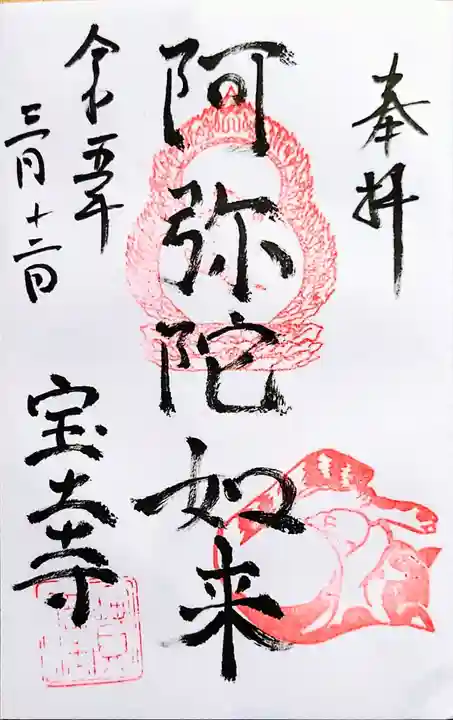 奉拝
阿弥陀如来
令和五年
三月十二日
宝土寺